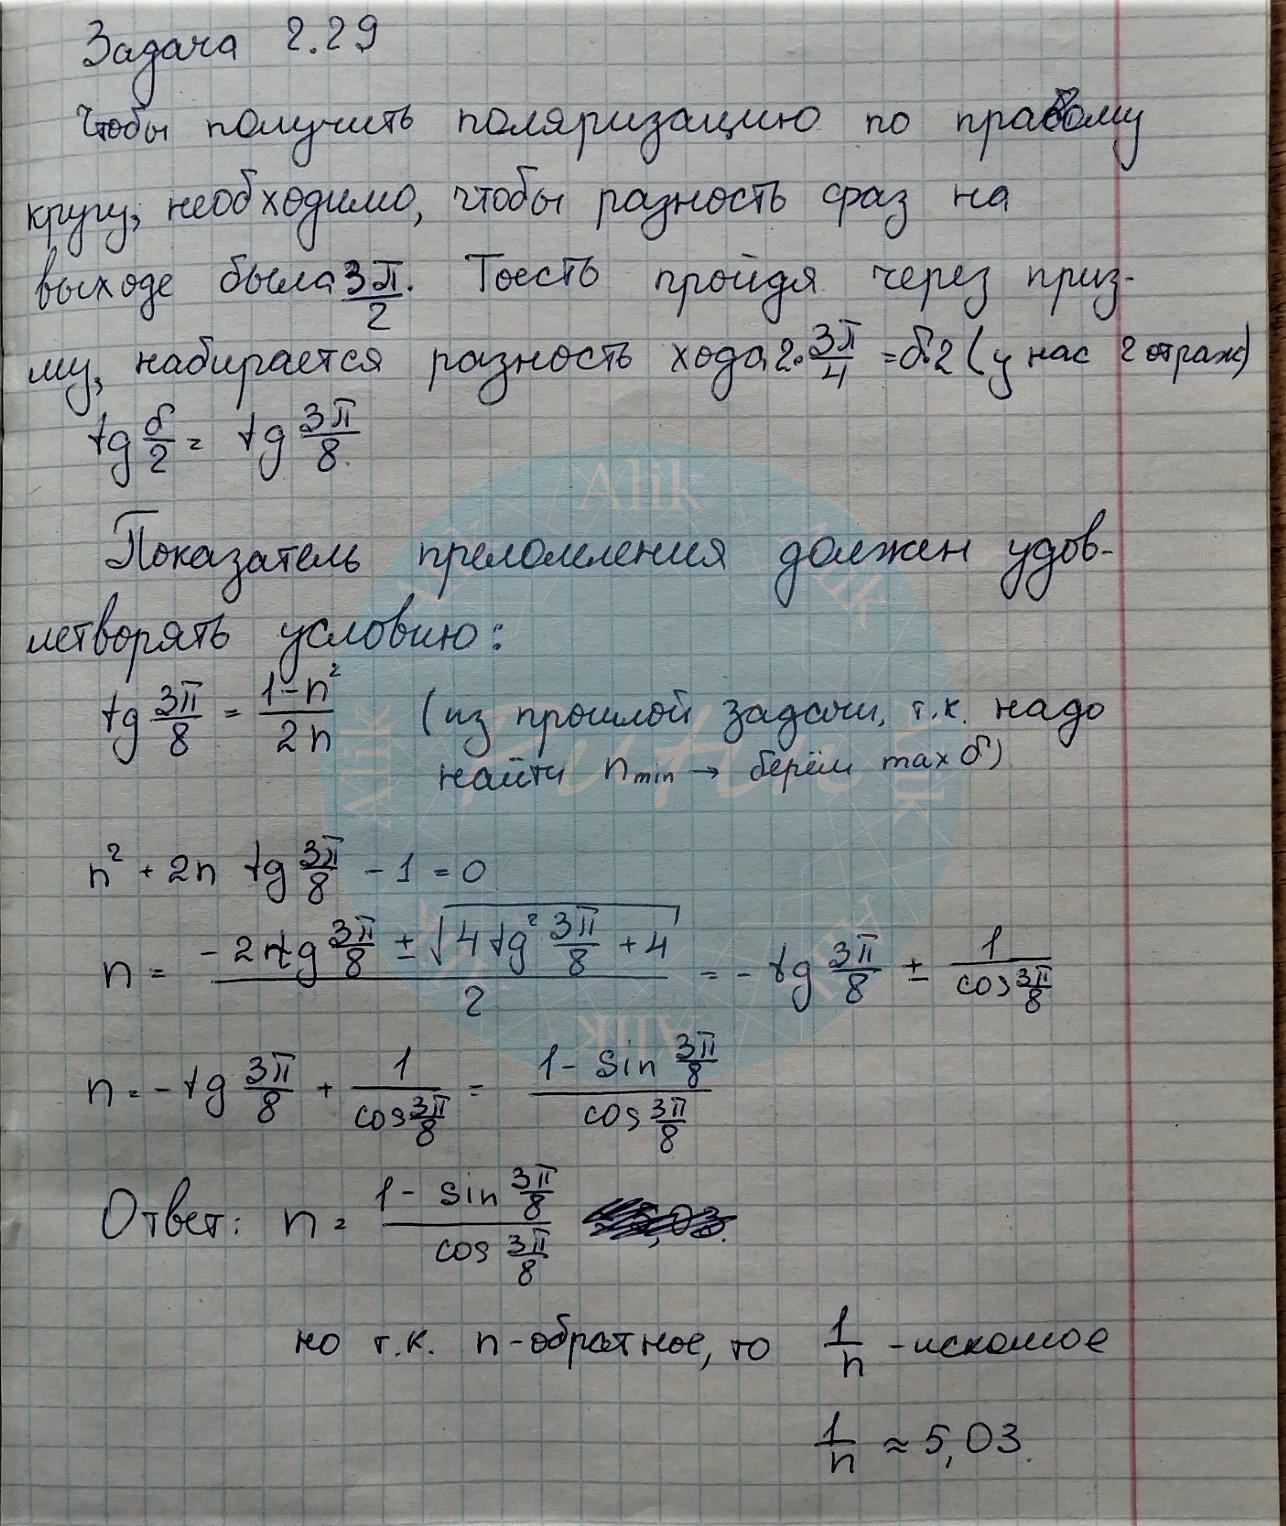 Задача 2.29
Чтобы получить поляризацию по правому
кругу, необходимо, чтобы разность фаз на
выходе была 3π/2. Тоесть пройдя через приз-
му, набирается разность хода 2·3π/4 = δ·2 (у нас 2 отраж)
tg δ/2 = tg 3π/8
Показатель преломления должен удов-
летворять условию:
tg 3π/8 = (1-n²)/2n (из прошлой задачи, т.к. надо
найти n min → берём max δ)
n² + 2n tg 3π/8 - 1 = 0
n = (-2 tg 3π/8 ± √(4 tg² 3π/8 + 4))/2 = - tg 3π/8 ± 1/cos 3π/8
n = - tg 3π/8 + 1/cos 3π/8 = (1 - sin 3π/8)/cos 3π/8
Ответ: n = (1 - sin 3π/8)/cos 3π/8
но т.к. n-обратное, то 1/n - искомое
1/n ≈ 5,03.
Alik
Alik
Alik
Alik
Alik
Alik